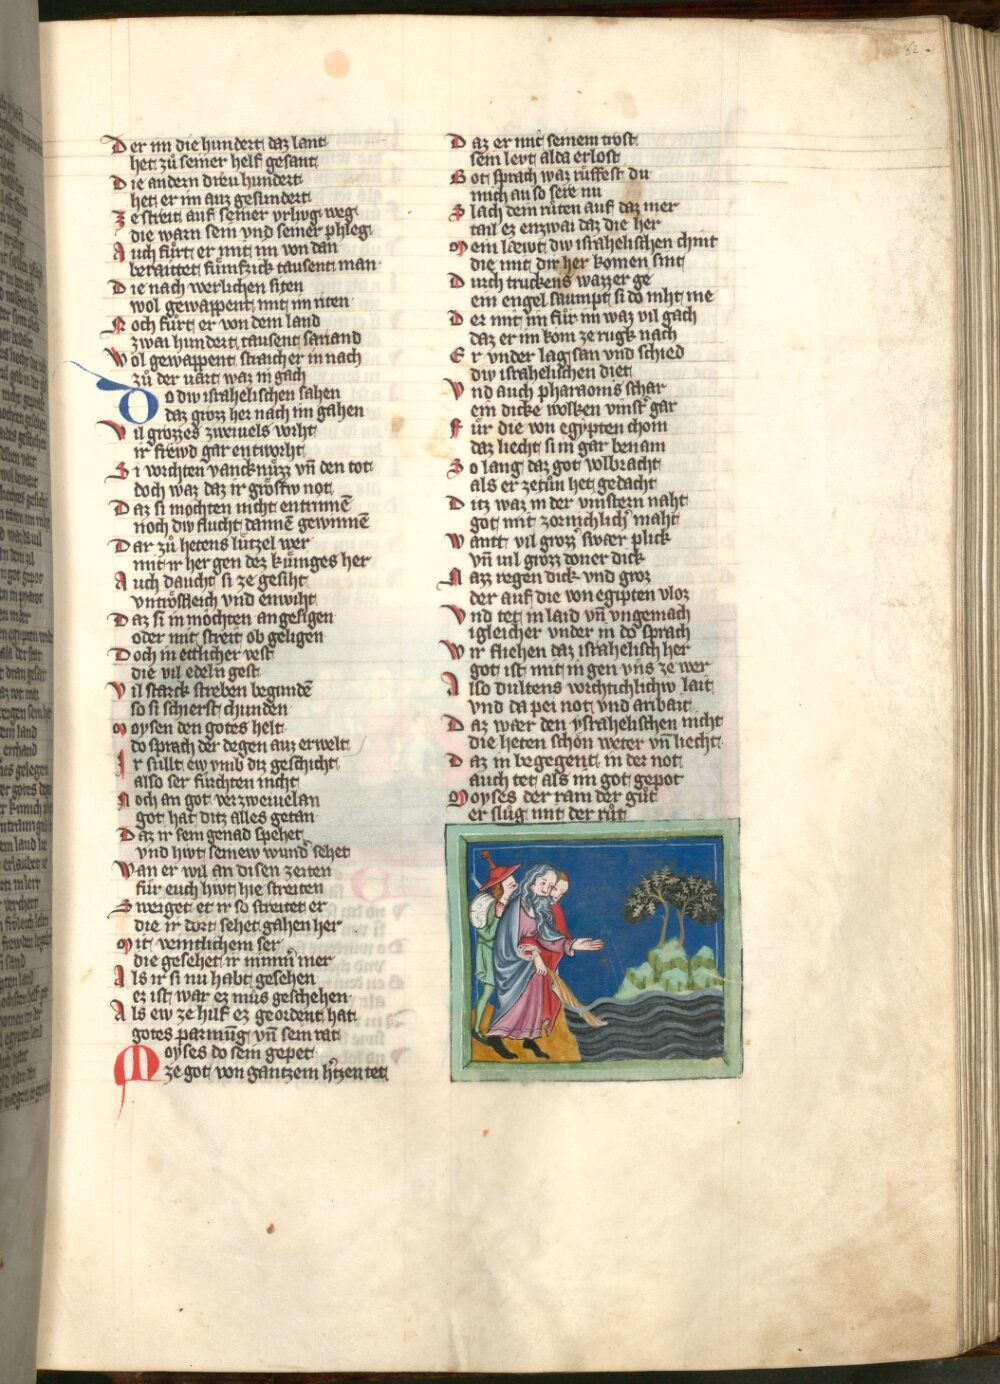 Der im die hundert daz lant
het zů seiner helf gesant
Die andern dreu hundert
het er im auz gesundert
Ze streit auf seiner vrlivg weg
die warn sein vnd seiner phleg
Auch fůrt er mit im von dan
beraittet fůmfzick tausent man
Die nach werlichen siten
wol gewappent mit im riten
Noch fůrt er von dem land
zwai hundert tausent sariand
Wol gewappent straicher in nach
zů der vart waz in gach
Do div israhelischen sahen
daz groz her nach im gahen
Vil grozzes zweiuels wrht
ir frewd gar entworht
Si vorchten vancknůzz vñ den tot
doch waz daz ir gröstw not
Daz si mochten nicht entrinnē
noch div flucht dannē gewinnē
Dar zů hetens lůtzel wer
mit ir her gen dez kůniges her
Auch daucht si ze gesiht
vntröstleich vnd enwiht
Daz si in möchten angesigen
oder mit streit ob geligen
Doch in ettlicher vest
die vil edeln gest
Vil starck streben begundē
so si schierst chunden
Moysen den gotes helt
do sprach der degen auz erwelt
Ir sullt ew vmb diz geschicht
also ser fůrchten nicht
Noch an got verzweiuelan
got hat ditz alles getan
Daz ir sein genad spehet
vnd hiwt seinew wundˀ sehet
Wan er wil an disen zeiten
fůr euch hiwt hie streiten
Sweiget et ir so streitet er
die ir dort sehet gahen her
Mit veintlichem ser
die gesehet ir nimm mer
Als ir si nu habt gesehen
ez ist war ez můs geschehen
Als ew ze hilf ez geordent hat
gotes parmūg vñ sein rat
Moyses do sein gepet
ze got von gantzem hˀtzen tet
62
Daz er mit seinem trost
sein levt alda erlost
Got sprach waz růffest du
mich an so sere nu
Slach dein růten auf daz mer
tail ez enzwai daz die her
Mein læwt div israhelischen chint
die mit dir her komen sint
Durch truckens wazzer ge
ein engel saumpt si do niht me
Der mit im fůr im waz vil gach
daz er im kom ze rugk nach
Er vnder lag san vnd schied
div israhelischen diet
Vnd auch pharaonis schar
ein dicke wolken vinstˀ gar
Fůr die von egypten chom
daz liecht si in gar benam
So lang daz got volbracht
als er zetůn het gedacht
Ditz waz in der vinstern naht
got mit zornichlichˀ maht
Wantt vil groz swær plick
vñ vil groz doner dick
Nazz regen dick vnd groz
der auf die von egipten vloz
Vnd tet in laid vñ vngemach
igleicher vnder in do sprach
Wir fliehen daz israhelisch her
got ist mit in gen vns ze wer
Also dultens vorchtichlichw lait
vnd da pei not vnd aribait
Daz wær den ysrahelischen nicht
die heten schön weter vñ liecht
Daz in begegent in der not
auch tet als im got gepot
Moyses der rain der gůt
er slůg mit der růt